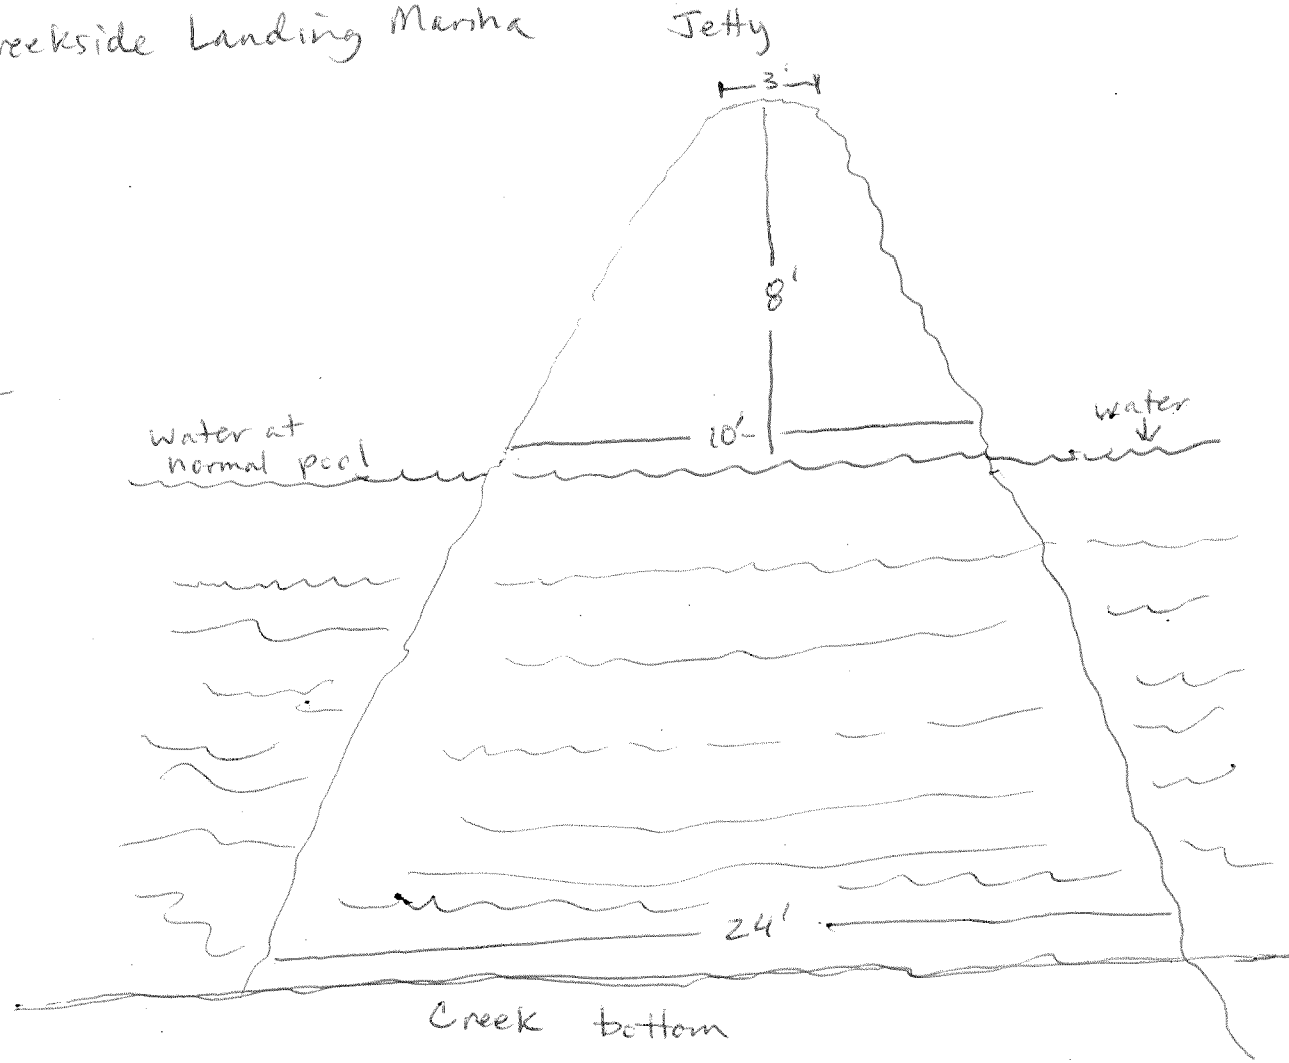 reekside Landing Marina Jetty
3'
8'
10'
water at
normal pool
water
24'
Creek bottom